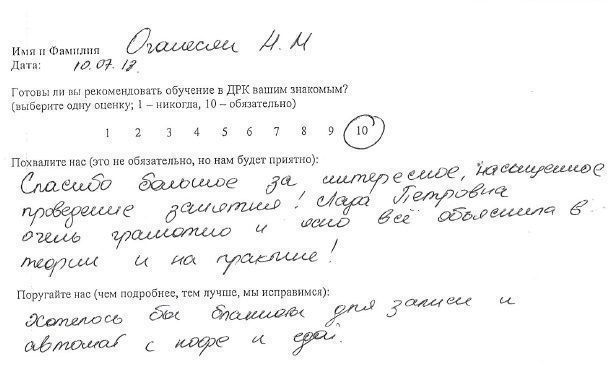 Имя и Фамилия Оганесян Н. М
Дата: 10.07.18.
Готовы ли вы рекомендовать обучение в ДРК вашим знакомым?
(выберите одну оценку; 1 – никогда, 10 – обязательно)
1 2 3 4 5 6 7 8 9 10
Похвалите нас (это не обязательно, но нам будет приятно):
Спасибо большое за интересное, насыщенное
проведение занятия! Лара Петровна
очень грамотно и ясно всё объяснила в
теории и на практике!
Поругайте нас (чем подробнее, тем лучше, мы исправимся):
Хотелось бы блокноты для записи и
автомат с кофе и едой.